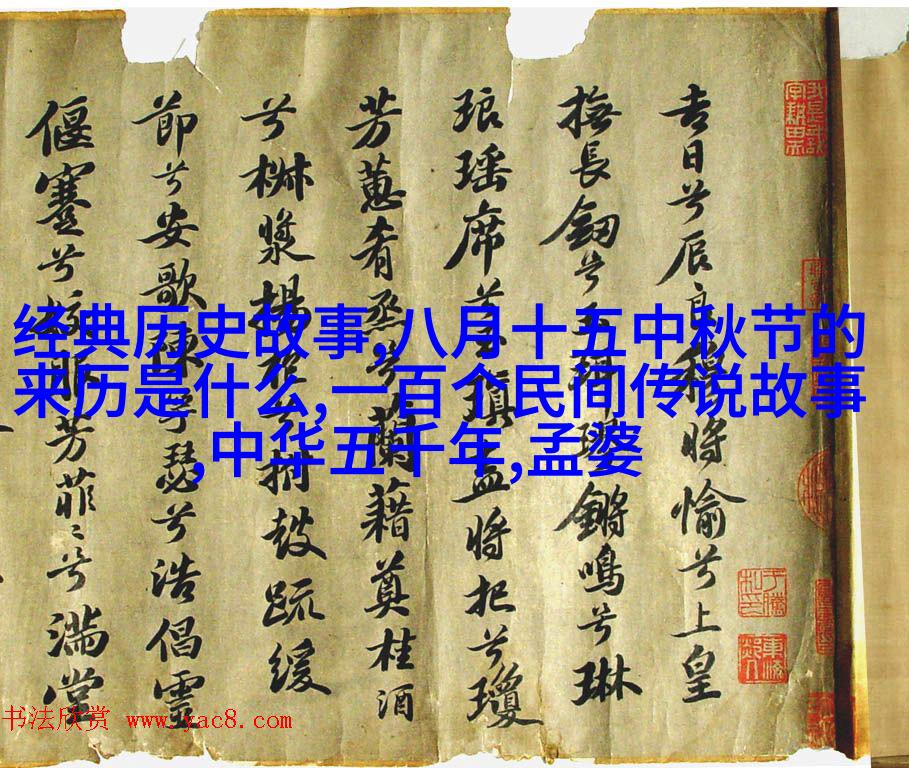 吉日兮辰良穆將愉兮上皇
撫長劒兮玉珥璆鏘鳴兮琳
琅瑶席兮玉瑱盍將把兮瓊
芳蕙肴烝兮蘭藉奠桂酒
兮椒漿揚枹兮拊鼓疏緩
節兮安歌陳竽瑟兮浩倡靈
偃蹇兮姣服芳菲〻兮滿堂
经典历史故事,八月十五中秋节的
来历是什么,一百个民间传说故事
,中华五千年,孟婆
书法欣赏 www.yac8.com